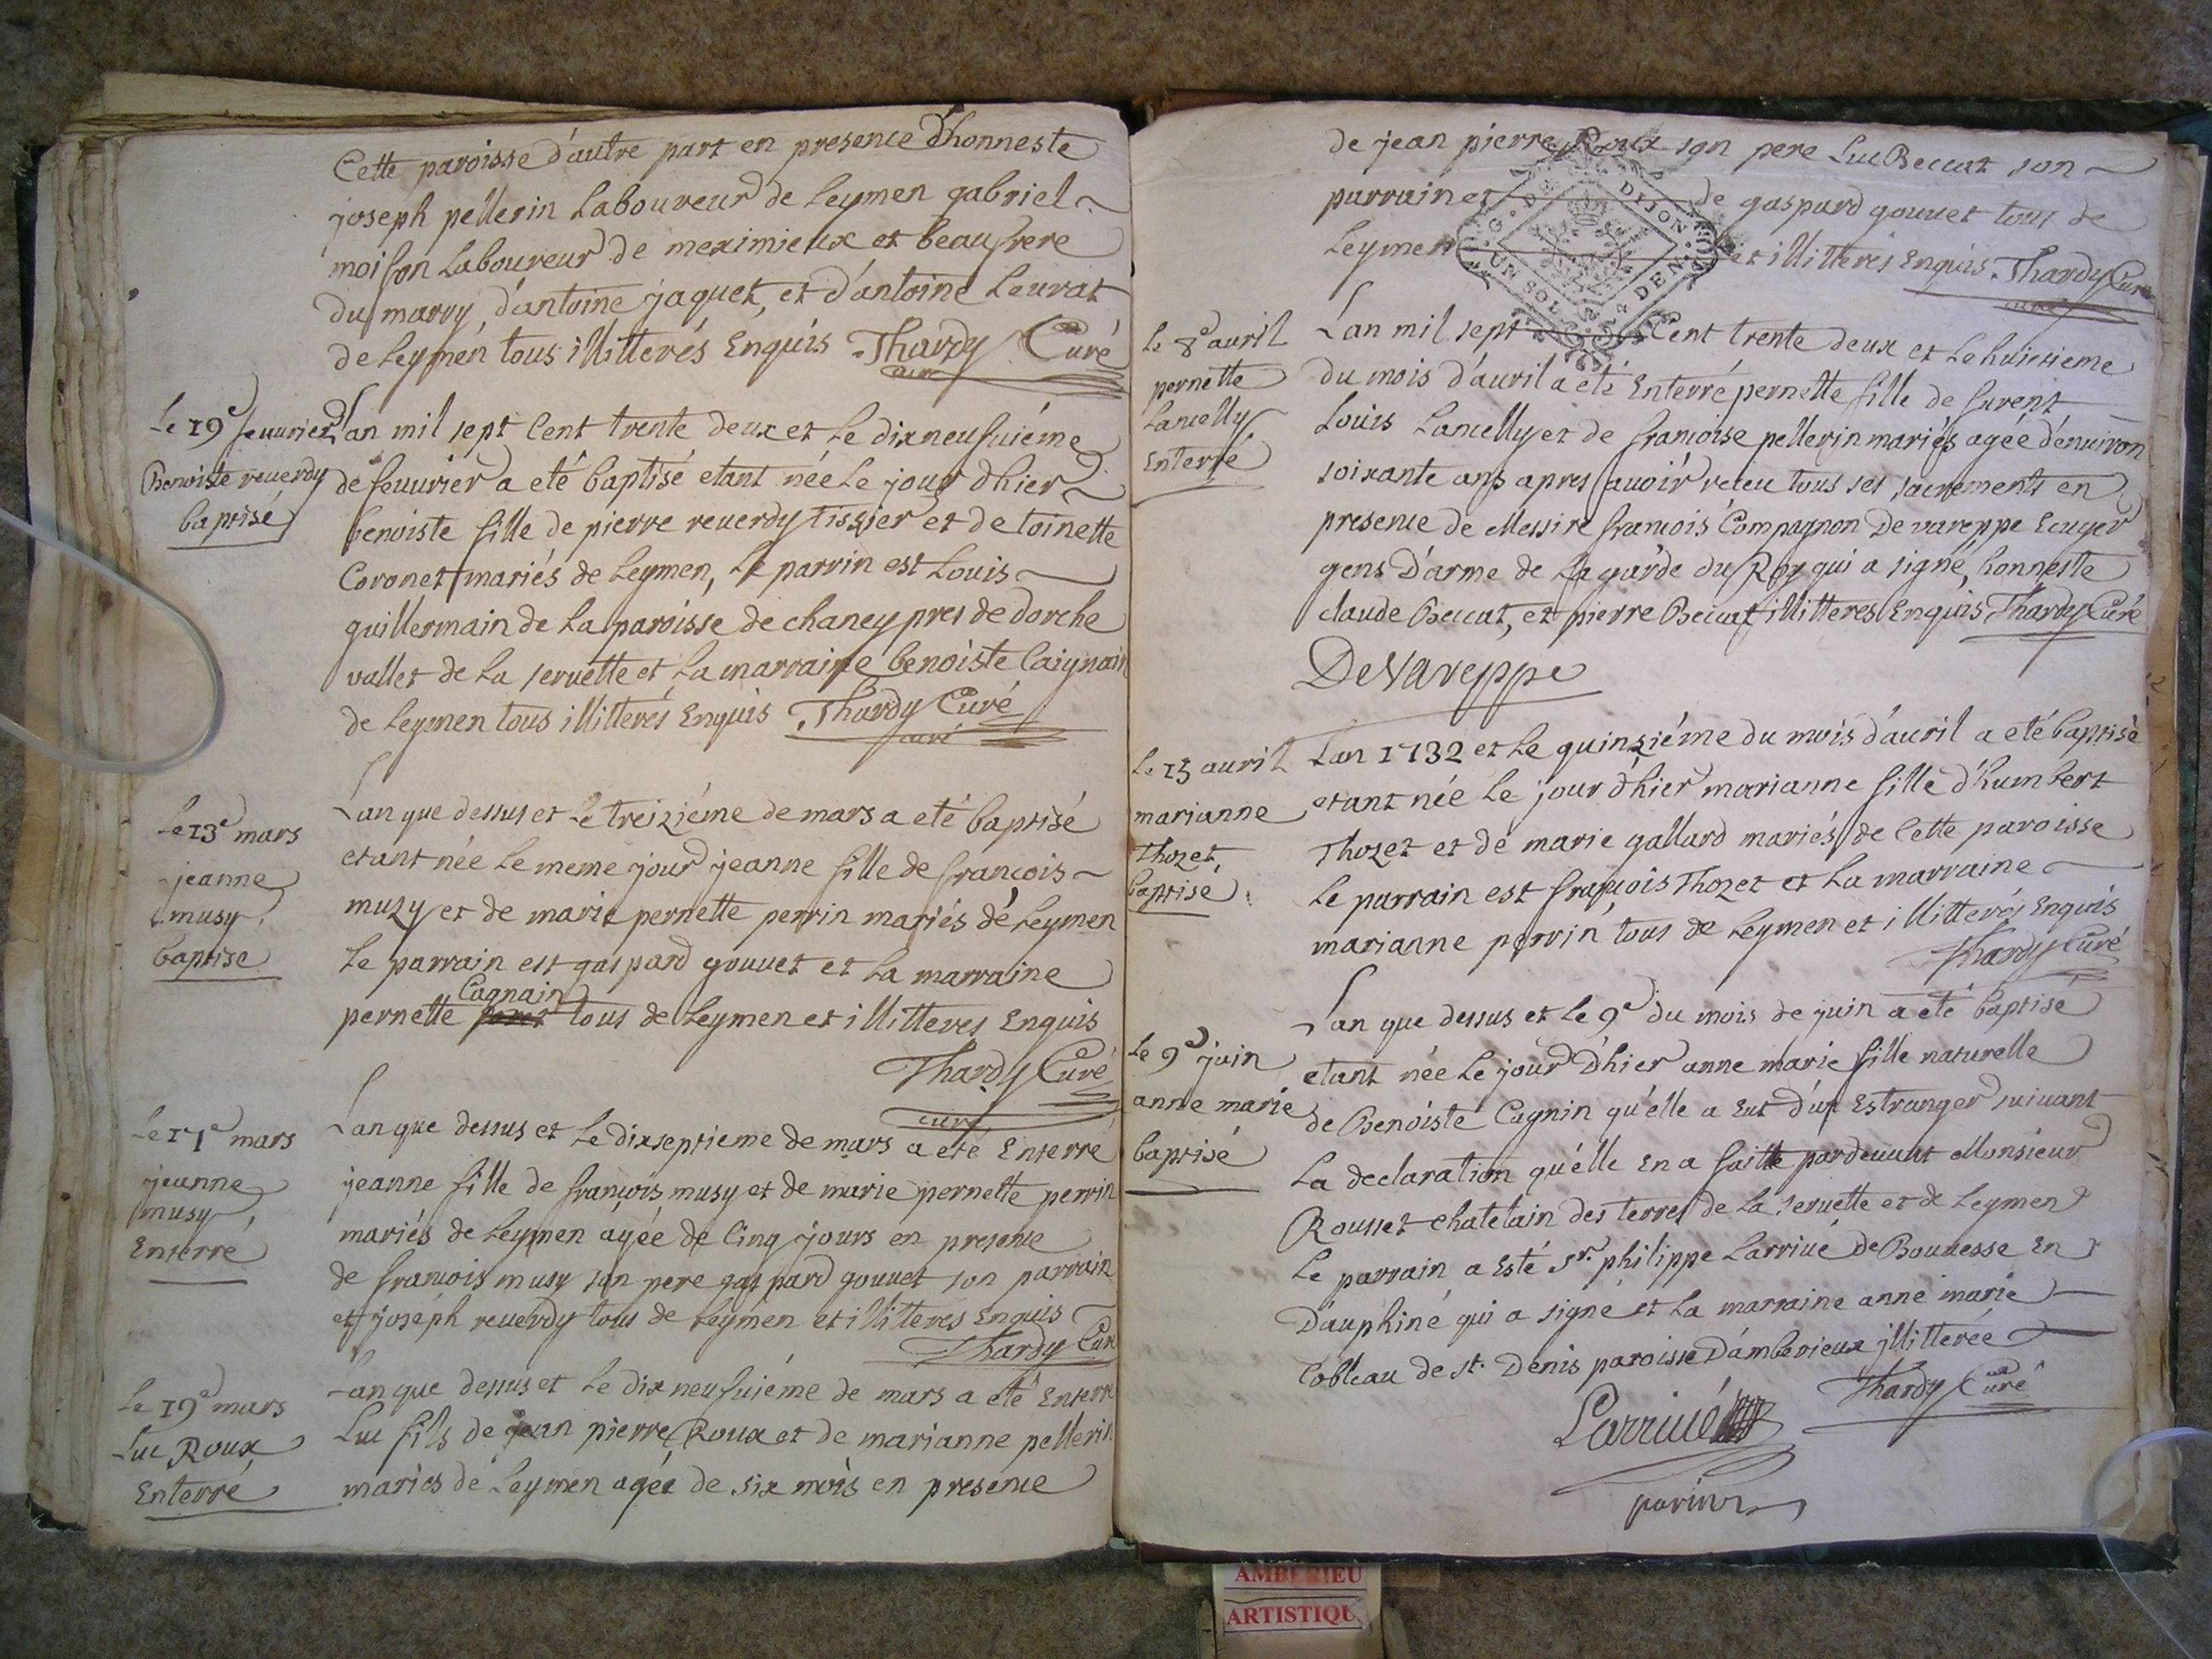 Cette paroisse d'autre part en presence d'honneste
joseph pellerin Laboureur de Leymen gabriel
moison Laboureur de meximieux et beaufrere
du marry, d'antoine jaquet, et d'antoine Leurat
de Leymen tous illitterés Enquis Thardy Curé
curé
Le 19e feuurier
Benoiste reuerdy
baptisé
L'an mil sept Cent trente deux et Le dixneufuiéme
de feuurier a eté baptisé etant née Le jour d'hier
benoiste fille de pierre reuerdy tissier et de toinette
Coronet mariés de Leymen, Le parrin est Louis
guillermain de La paroisse de chaney pres de dorche
vallet de La seruette et La marraine benoiste Caignain
de Leymen tous illitterés Enquis Thardy Curé
curé
Le 13e mars
jeanne
musy
baptise
L'an que dessus et Le treiziéme de mars a eté baptisé
etant née Le meme jour jeanne fille de francois
muzy et de marie pernette perrin mariés de Leymen
Le parrain est gaspard gouuet et La marraine
Cagnain
pernette tous de Leymen et illitteres Enquis
Thardy Curé
curé
Le 17e mars
jeanne
musy
Enterré
L'an que dessus et Le dixseptieme de mars a eté Enterré
jeanne fille de françois musy et de marie pernette perrin
mariés de Leymen agée de Cinq jours en presence
de francois musy son pere gaspard gouuet son parrain
et joseph reuerdy tous de Leymen et illitteres Enquis
Thardy Curé
Le 19e mars
Luc Roux
Enterré
L'an que dessus et Le dixneufuiéme de mars a eté Enterré
Luc fils de jean pierre Roux et de marianne pellerin
mariés de Leymen agée de six mois en presence
de jean pierre Roux son pere Luc Beccat son
parrain et de gaspard gouuet tous de
Leymen et illitterés Enquis Thardy Curé
curé
G. DE DIJON
UN SOL
DEN
Le 8e auril
pernette
Lancelly
Enterré
L'an mil sept Cent trente deux et Le huitieme
du mois d'auril a eté Enterré pernette fille de furent
Louis Lancelly et de francoise pellerin mariés agée d'enuiron
soixante ans apres auoir receu tous ses sacrements en
presence de Messire francois Compagnon De vareppe Ecuyer
gens D'arme de La garde du Roy qui a signé, honneste
claude Beccat, et pierre Beccat illitteres Enquis Thardy Curé
De Vareppe
Le 15 auril
marianne
Thozet
baptisé
L'an 1732 et Le quinziéme du mois d'auril a eté baptisé
etant née Le jour d'hier marianne fille d'humbert
Thozet et de marie gallard mariés de Cette paroisse
Le parrain est françois Thozet et La marraine
marianne perrin tous de Leymen et illitterés Enquis
Thardy Curé
Le 9e juin
anne marie
baptisé
L'an que dessus et Le 9e du mois de juin a eté baptisé
etant née Le jour D'hier anne marie fille naturelle
de Benoiste Cagnin qu'elle a Eut d'un Estranger suiuant
La declaration qu'elle En a faitte pardeuant Monsieur
Rousset chatelain des terres de La seruette et de Leymen
Le parrain a Esté Sr. philippe Larriué de Bouuesse En
Dauphiné qui a signé et La marraine anne marie
Cobleau de st. Denis paroisse D'amberieux illitterée
Thardy Curé
Larriué
parin
AMBERIEU
ARTISTIQU